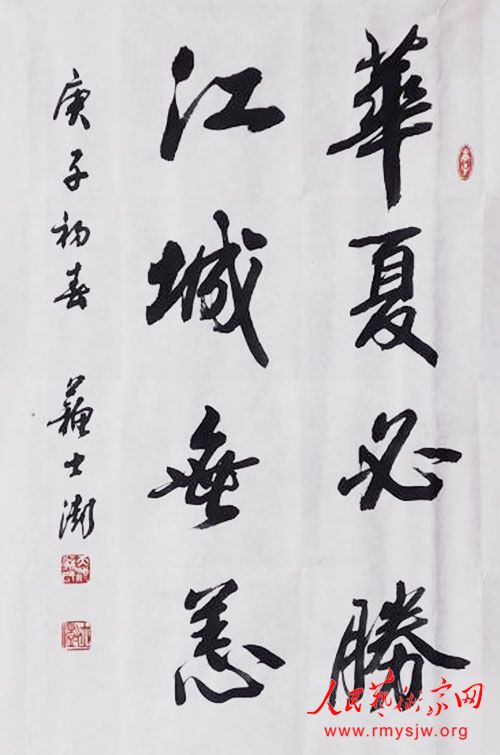 華夏必勝
江城無恙
庚子初春 蘇士澍
人民艺术家网
www.rmysjw.org